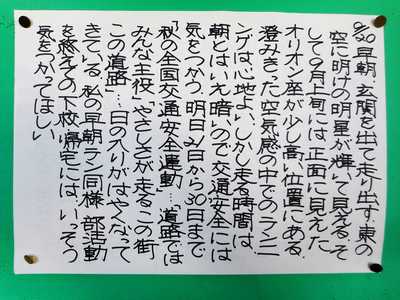 9/20早朝、玄関を出て走り出す。東の
空に明けの明星が輝いて見える。そ
して9月上旬には正面に見えた
オリオン座が少し高い位置にある。
澄みきった空気感の中でのランニ
ングは心地よい。しかし走る時間は、
朝とはいえ暗いので交通安全には
気をつかう。明日21日から30日まで
「秋の全国交通安全運動」…「道路では
みんな主役」「やさしさが走るこの街
この道路」…日の入りがはやくなって
きている。私の早朝ラン同様、部活動
を終えての下校、帰宅には、いっそう
気をつかってほしい。